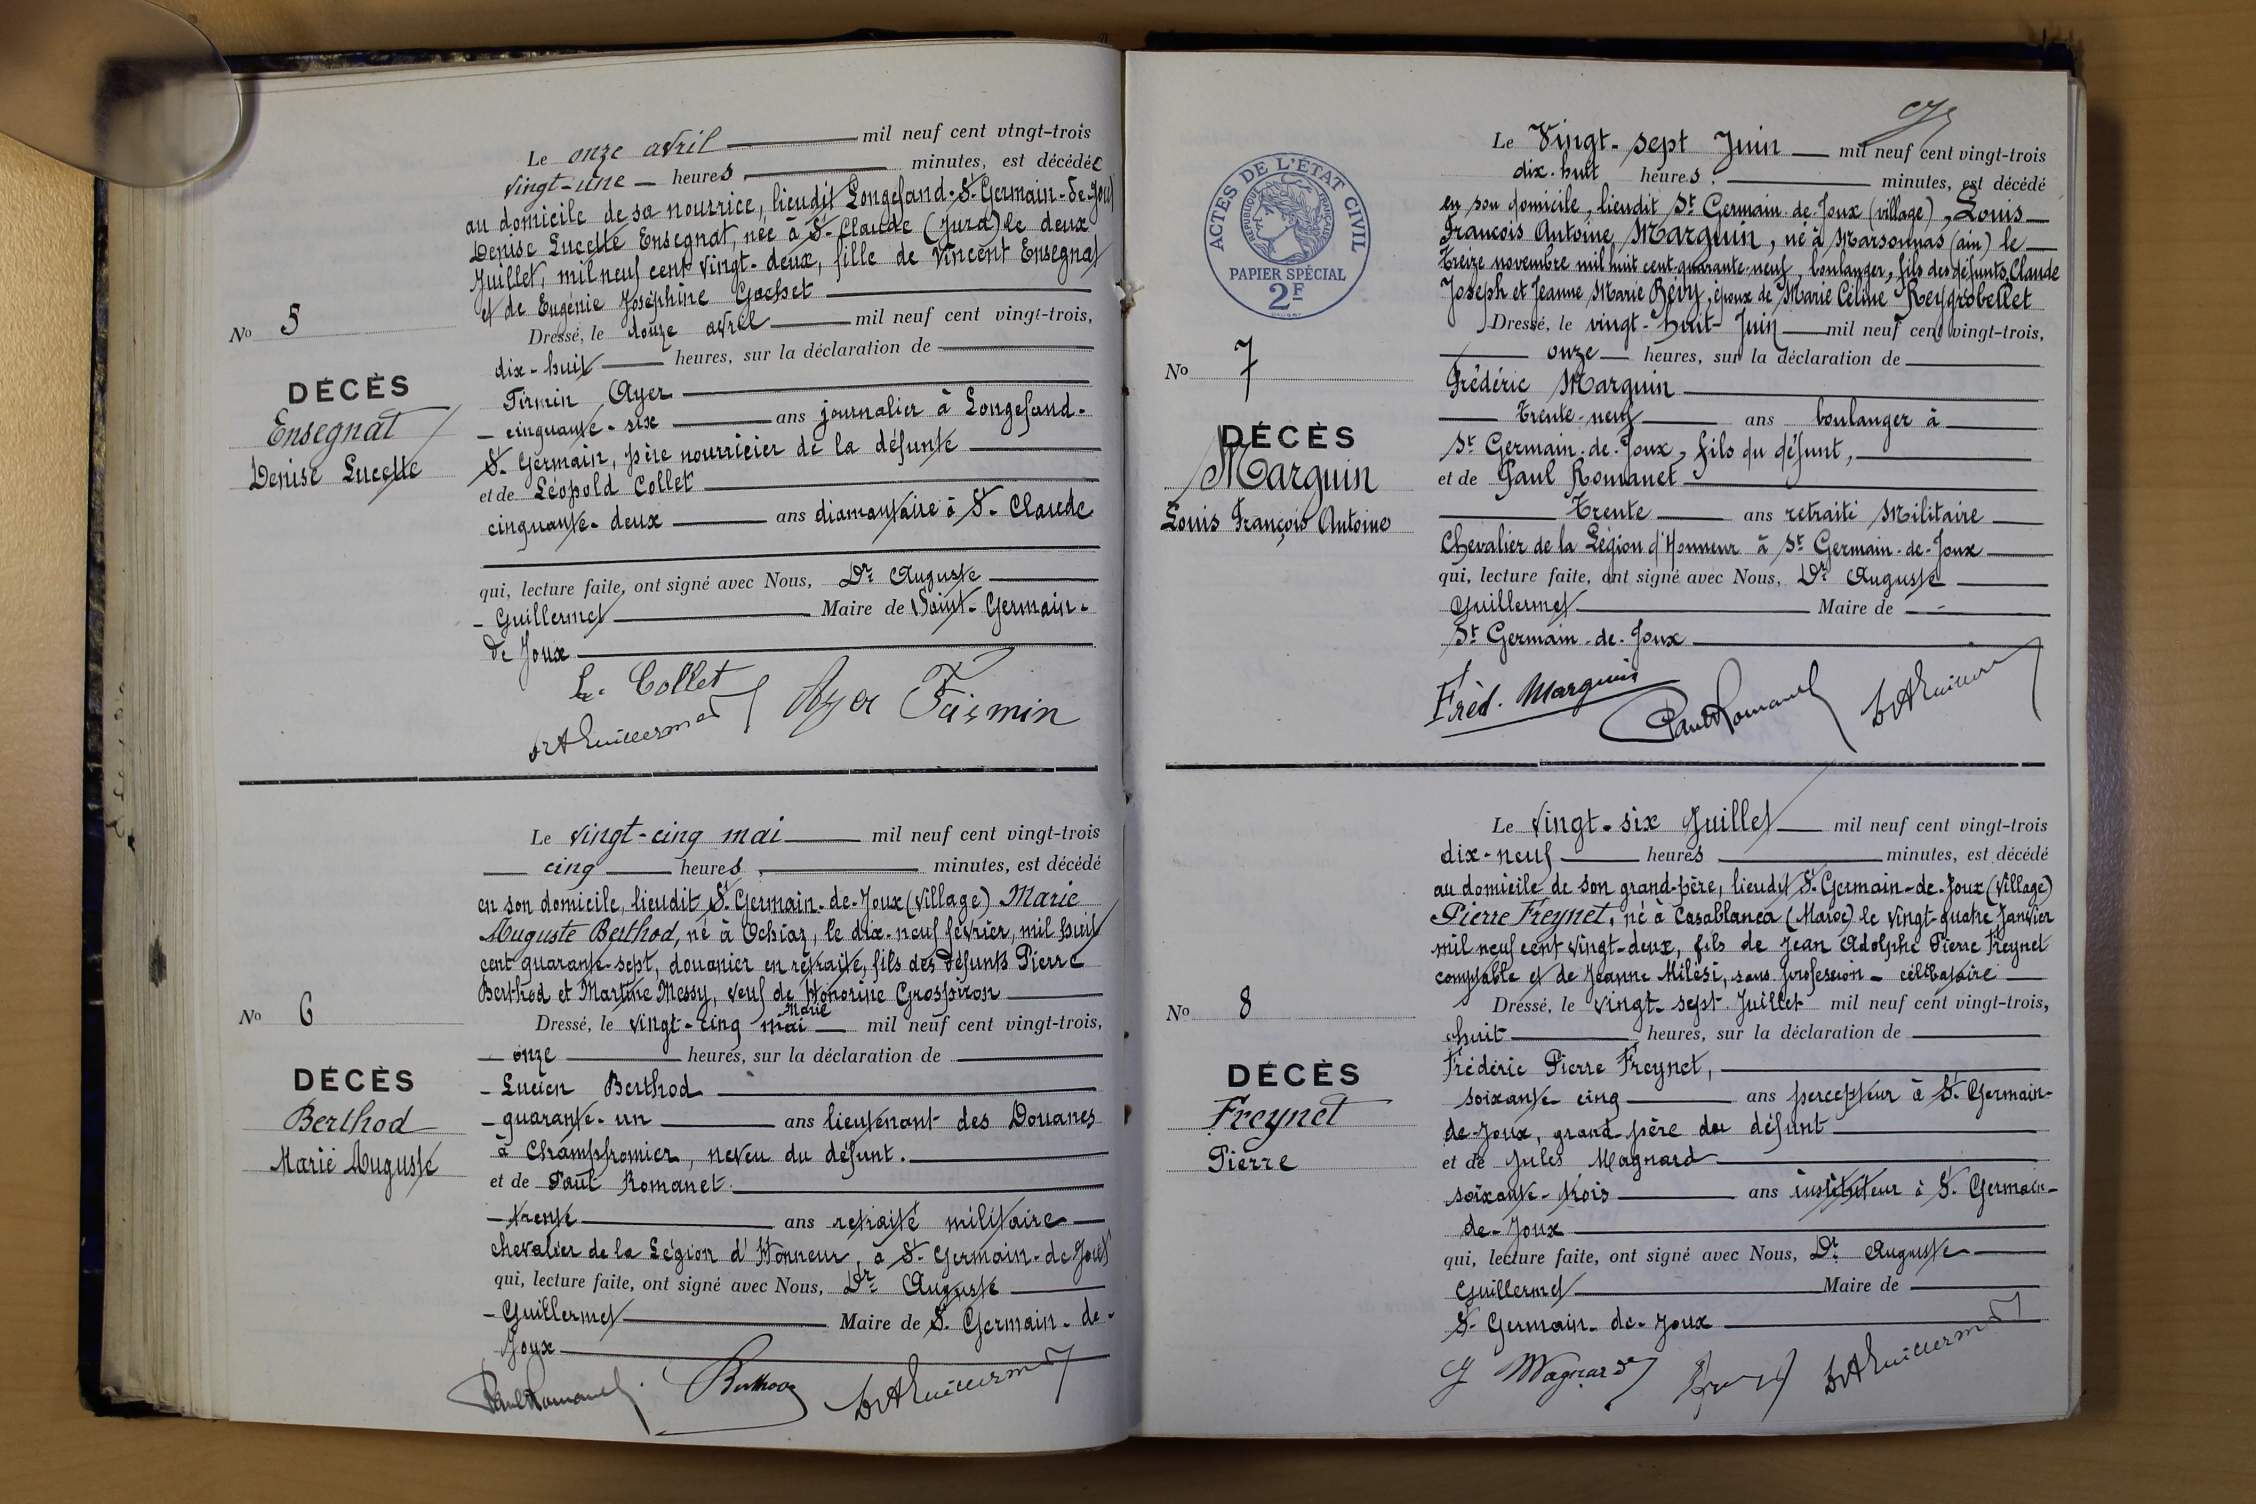 Le onze avril mil neuf cent vingt-trois
vingt-une heures minutes, est décédée
au domicile de sa nourrice, lieudit Longefand-St-Germain-de-Joux
Denise Lucette Ensegnat, née à St-Claude (Jura) le deux
Juillet, mil neuf cent vingt-deux, fille de Vincent Ensegnat
et de Eugénie Joséphine Gachet
No 5
Dressé, le douze avril mil neuf cent vingt-trois,
dix-huit heures, sur la déclaration de
DÉCÈS
Ensegnat
Denise Lucette
Firmin Ayer
cinquante-six ans journalier à Longefand-
St-Germain, père nourricier de la défunte
et de Léopold Collet
cinquante-deux ans diamantaire à St-Claude
qui, lecture faite, ont signé avec Nous, Dr Auguste
Guillermet Maire de Saint-Germain-
de Joux
L. Collet
Ayer Firmin
Dr A Guillermet
Le vingt-cinq mai mil neuf cent vingt-trois
cinq heures, minutes, est décédé
en son domicile, lieudit St-Germain-de-Joux (Village) Marie
Auguste Berthod, né à Ochiaz, le dix-neuf février, mil huit
cent quarante-sept, douanier en retraite, fils des défunts Pierre
Berthod et Martine Messy, veuf de Honorine Grospiron
Marie
No 6
Dressé, le vingt-cinq mai mil neuf cent vingt-trois,
onze heures, sur la déclaration de
DÉCÈS
Berthod
Marie Auguste
Lucien Berthod
quarante-un ans lieutenant des Douanes
à Champfromier, neveu du défunt.
et de Paul Romanet
trente ans retraité militaire
chevalier de la Légion d'Honneur, à St-Germain-de-Joux
qui, lecture faite, ont signé avec Nous, Dr Auguste
Guillermet Maire de St-Germain-de-
Joux
Paul Romanet Berthod Dr A Guillermet
ACTES DE L'ÉTAT CIVIL
RÉPUBLIQUE FRANÇAISE
PAPIER SPÉCIAL
2F
Le Vingt-sept Juin mil neuf cent vingt-trois
dix-huit heures. minutes, est décédé
en son domicile, lieudit St Germain-de-Joux (village), Louis
François Antoine Marguin, né à Marsonnas (ain) le
treize novembre mil huit cent quarante-neuf, boulanger, fils des défunts Claude
Joseph et Jeanne Marie Bévy, époux de Marie Céline Reygrobellet
No 7
Dressé, le vingt-huit Juin mil neuf cent vingt-trois,
onze heures, sur la déclaration de
DÉCÈS
Marguin
Louis François Antoine
Frédéric Marguin
trente-neuf ans boulanger à
St Germain-de-Joux, fils du défunt,
et de Paul Romanet
trente ans retraité Militaire
Chevalier de la Légion d'Honneur à St Germain-de-Joux
qui, lecture faite, ont signé avec Nous, Dr Auguste
Guillermet Maire de
St Germain-de-Joux
Fréd. Marguin Paul Romanet Dr A Guillermet
Le vingt-six Juillet mil neuf cent vingt-trois
dix-neuf heures minutes, est décédé
au domicile de son grand-père, lieudit St-Germain-de-Joux (Village)
Pierre Freynet, né à Casablanca (Maroc) le vingt-quatre Janvier
mil neuf cent vingt-deux, fils de Jean Adolphe Pierre Freynet
comptable et de Jeanne Milési, sans profession - célibataire
No 8
Dressé, le vingt-sept Juillet mil neuf cent vingt-trois,
huit heures, sur la déclaration de
DÉCÈS
Freynet
Pierre
Frédéric Pierre Freynet,
soixante cinq ans percepteur à St-Germain-
de-Joux, grand-père du défunt
et de Jules Magnard
soixante-trois ans instituteur à St-Germain-
de-Joux
qui, lecture faite, ont signé avec Nous, Dr Auguste
Guillermet Maire de
St-Germain-de-Joux
J Magnard Dr A Guillermet